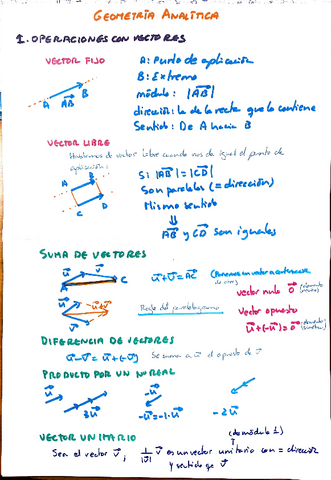 GEOMETRÍA ANALÍTICA
1. OPERACIONES CON VECTORES
VECTOR FIJO
A: Punto de aplicación
B: Extremo
módulo: |AB|
dirección: la de la recta que lo contiene
Sentido: De A hacia B
A AB B
VECTOR LIBRE
Hablamos de vector libre cuando nos da igual el punto de
aplicación:
A B
C D
Si |AB| = |CD|
Son paralelos (= dirección)
Mismo sentido
⇓
AB y CD son iguales
SUMA DE VECTORES
u v C
u + v = AC (Ponemos un vector a continuación
de otro)
vector nulo 0 (elemento
neutro)
u u+v
v
Regla del paralelogramo
vector opuesto
u + (-u) = 0 (elemento
simétrico)
DIFERENCIA DE VECTORES
u - v = u + (-v) Se suma a u el opuesto de v
PRODUCTO POR UN Nº REAL
u 3u -u -u = -1·u -2u
VECTOR UNITARIO (de módulo 1)
Sea el vector v; 1/|v| v es un vector unitario con = dirección
y sentido que v